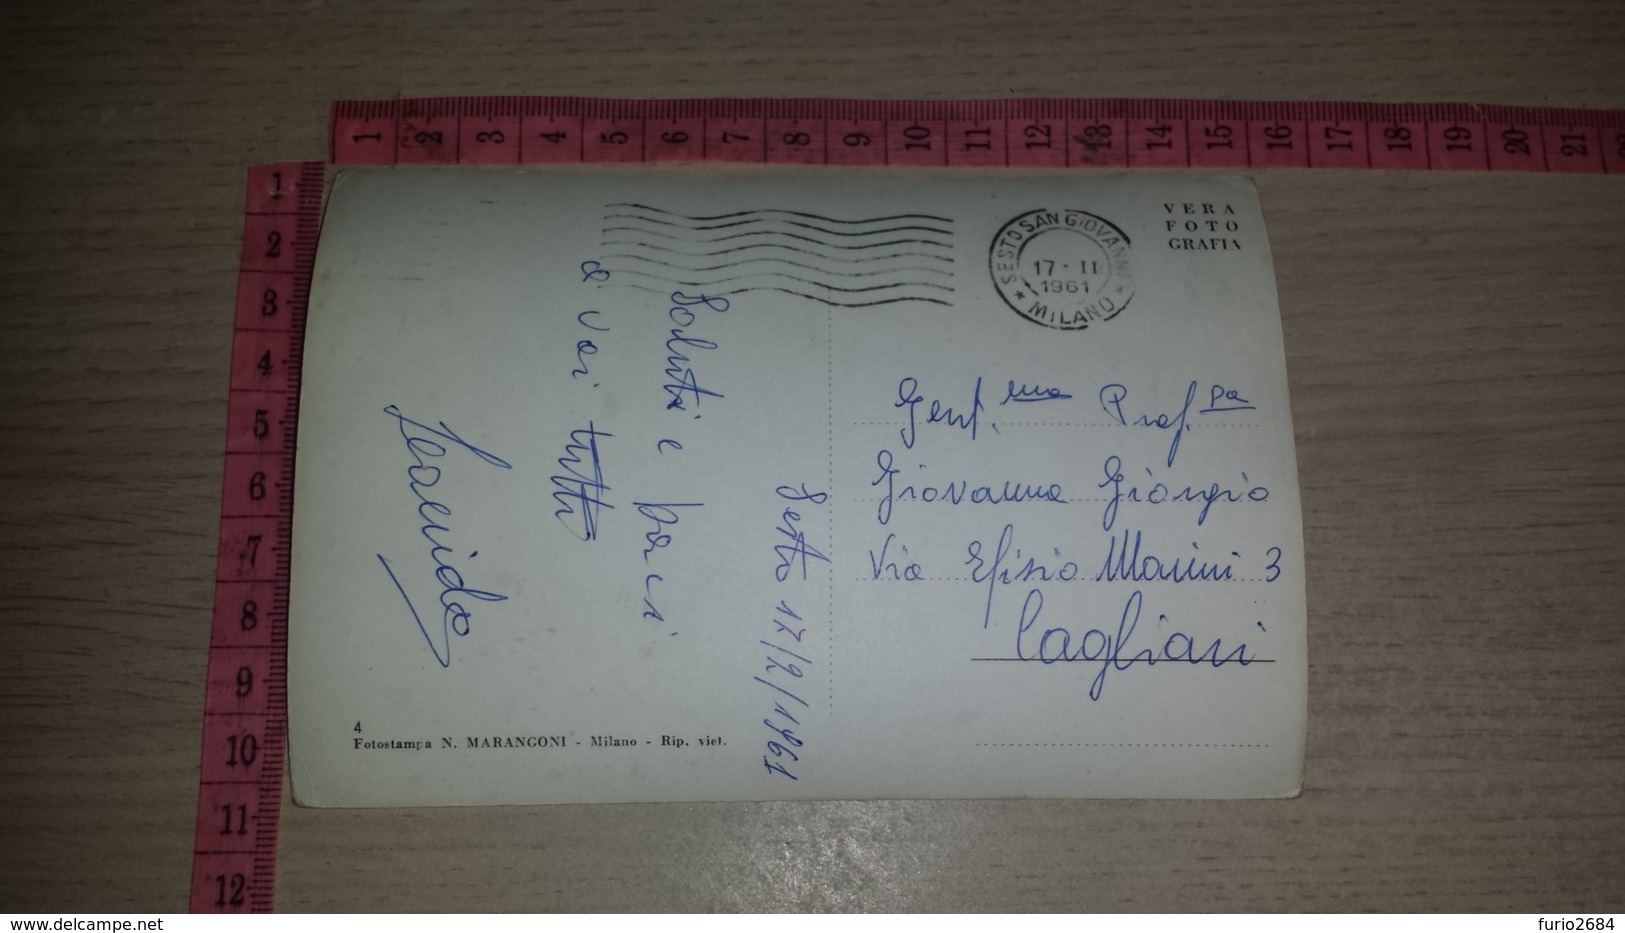 1 2 3 4 5 6 7 8 9 10 11 12 13 14 15 16 17 18 19 20 21
1
2
3
4
5
6
7
8
9
10
11
12
VERA
FOTO
GRAFIA
SESTO SAN GIOVANNI
17 - II
1961
* MILANO *
Gent.ma Prof.ssa
Giovanna Giorgio
Via Efisio Marini 3
Cagliari
Sesto 17/2/1961
Saluti e baci
a voi tutti
4
Fotostampa N. MARANGONI - Milano - Rip. viet.
delcampe.net
furio2684